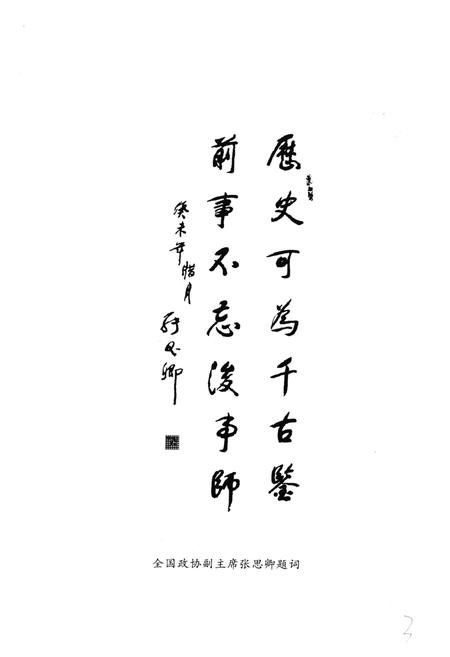 歷史可為千古鑒
前事不忘後事師
癸未年腊月
张思卿
全国政协副主席张思卿题词
3